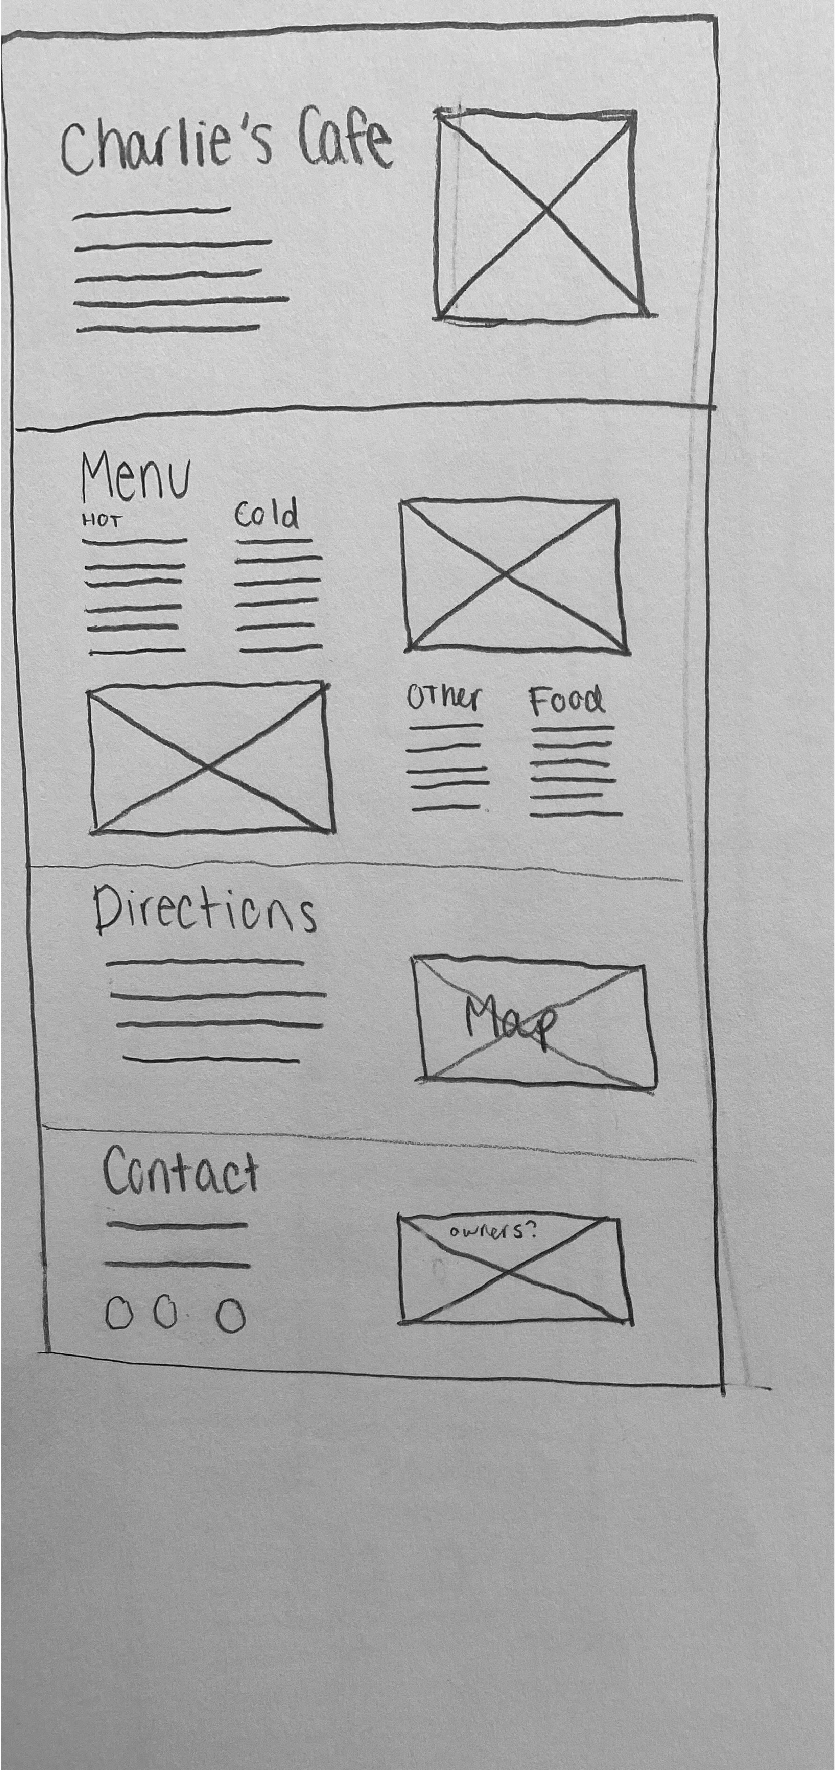 Charlie's Cafe
Menu
HOT
Cold
Other
Food
Directions
Map
Contact
owners?